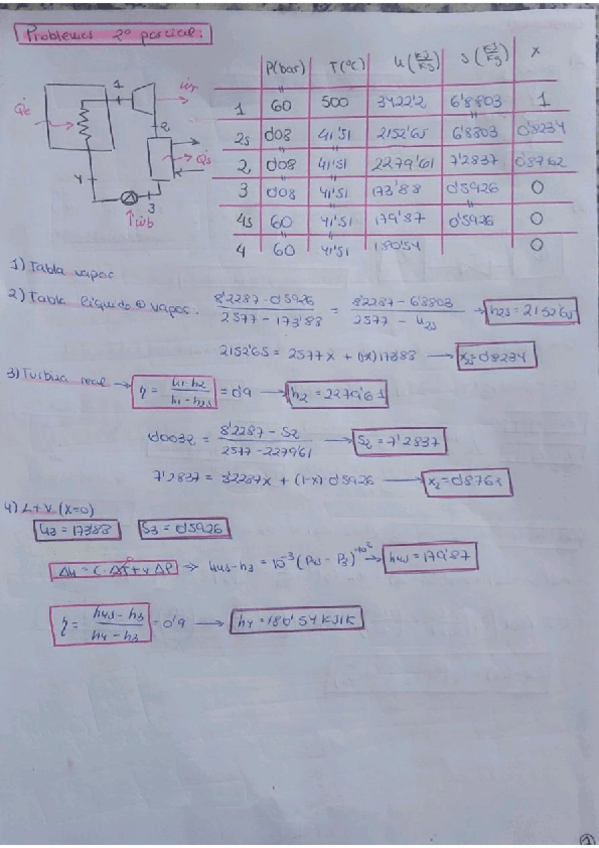 Problemas 2º parcial:
P(bar) T(ºc) h(KJ/Kg) s(KJ/Kg) x
1 60 500 3422'2 6'8803 1
2s 0'08 41'51 2152'65 6'8803 0'8234
2 0'08 41'51 2279'61 7'2837 0'8762
3 0'08 41'51 173'88 0'5926 0
4s 60 41'51 179'87 0'5926 0
4 60 41'51 180'54 0
1
Q̇e
2
Q̇s
4
3
ẇb
1) Tabla vapor
2) Tabla líquido vapor. (8'2287-0'5926)/(2577-173'88) = (8'2287-6'8803)/(2577-h2s) → h2s = 2152'65
2152'65 = 2577x + (1-x)173'88 → x2s=0'8234
3) Turbina real → η = (h1-h2)/(h1-h2s) = 0'9 → h2 = 2279'61
0'0032 = (8'2287-S2)/(2577-2279'61) → S2 = 7'2837
7'2837 = 8'2287x + (1-x)·0'5926 → x2=0'8761
4) L+V (x=0)
h3 = 173'88 S3 = 0'5926
Δh = C·ΔT + v ΔP ⇒ h4s-h3 = 10⁻³(P4s-P3)·10² → h4s = 179'87
η = (h4s-h3)/(h4-h3) = 0'9 → h4 = 180'54 KJ/K